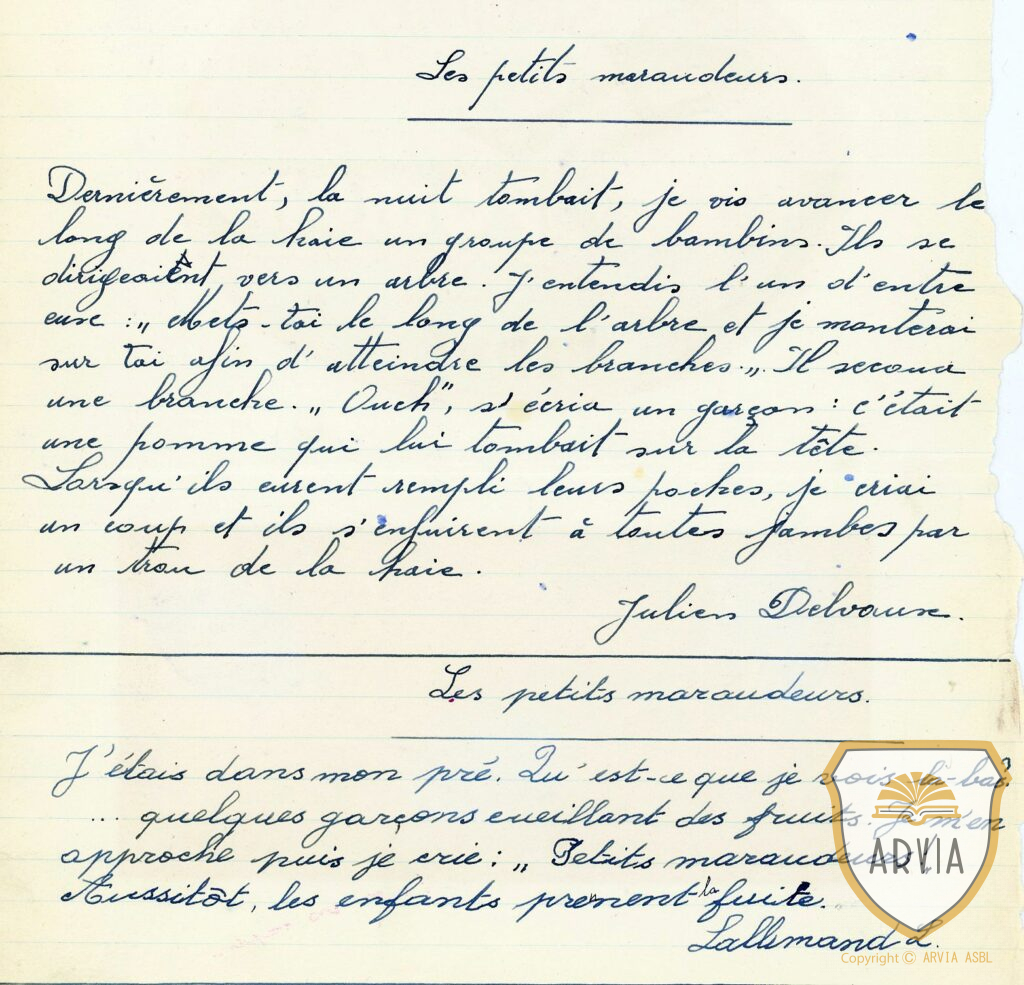 Les petits maraudeurs.
Dernièrement, la nuit tombait, je vis avancer le
long de la haie un groupe de bambins. Ils se
dirigeaient vers un arbre. J'entendis l'un d'entre
eux : „ Mets-toi le long de l'arbre et je monterai
sur toi afin d'atteindre les branches.„ Il secoua
une branche. „ Ouch", s'écria un garçon : c'était
une pomme qui lui tombait sur la tête.
Lorsqu'ils eurent rempli leurs poches, je criai
un coup et ils s'enfuirent à toutes jambes par
un trou de la haie.
Julien Delvaux.
Les petits maraudeurs.
J'étais dans mon pré. Qu'est-ce que je vois là-bas?
... quelques garçons cueillant des fruits. Je m'en
approche puis je crie : „ Petits maraudeurs!
Aussitôt, les enfants prenent la fuite.
Lallemand L.
ARVIA
Copyright © ARVIA ASBL